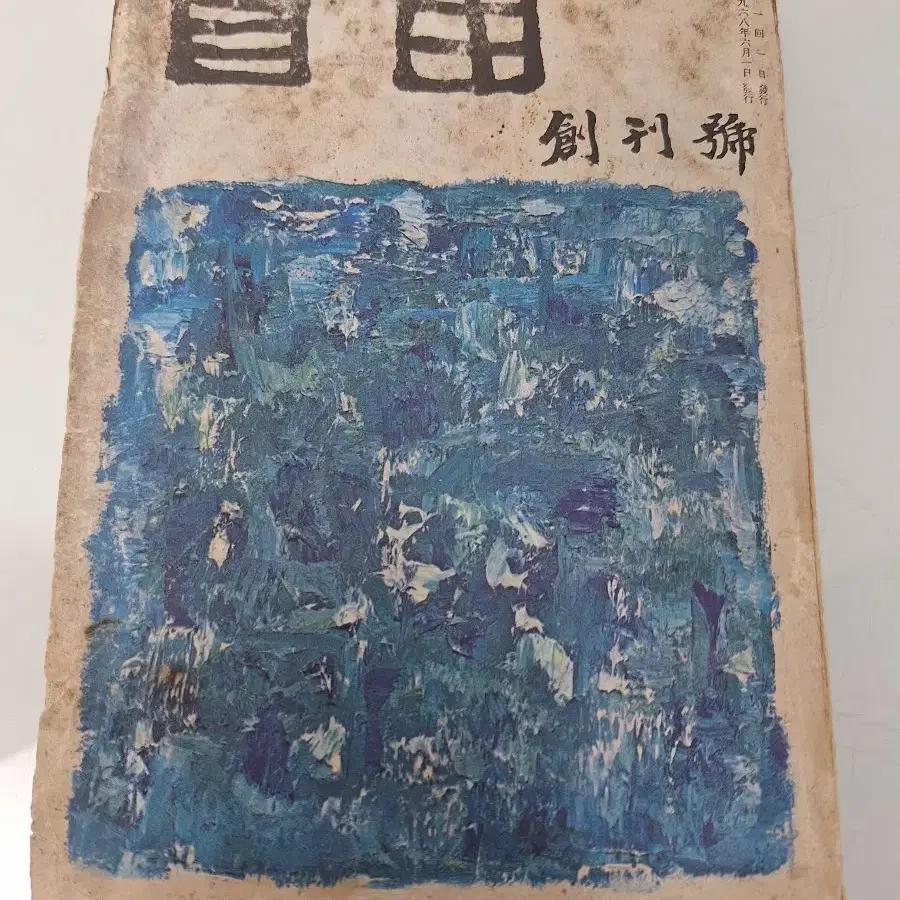 自由
一回一日發行
九六八年六月一日 發行
創刊號